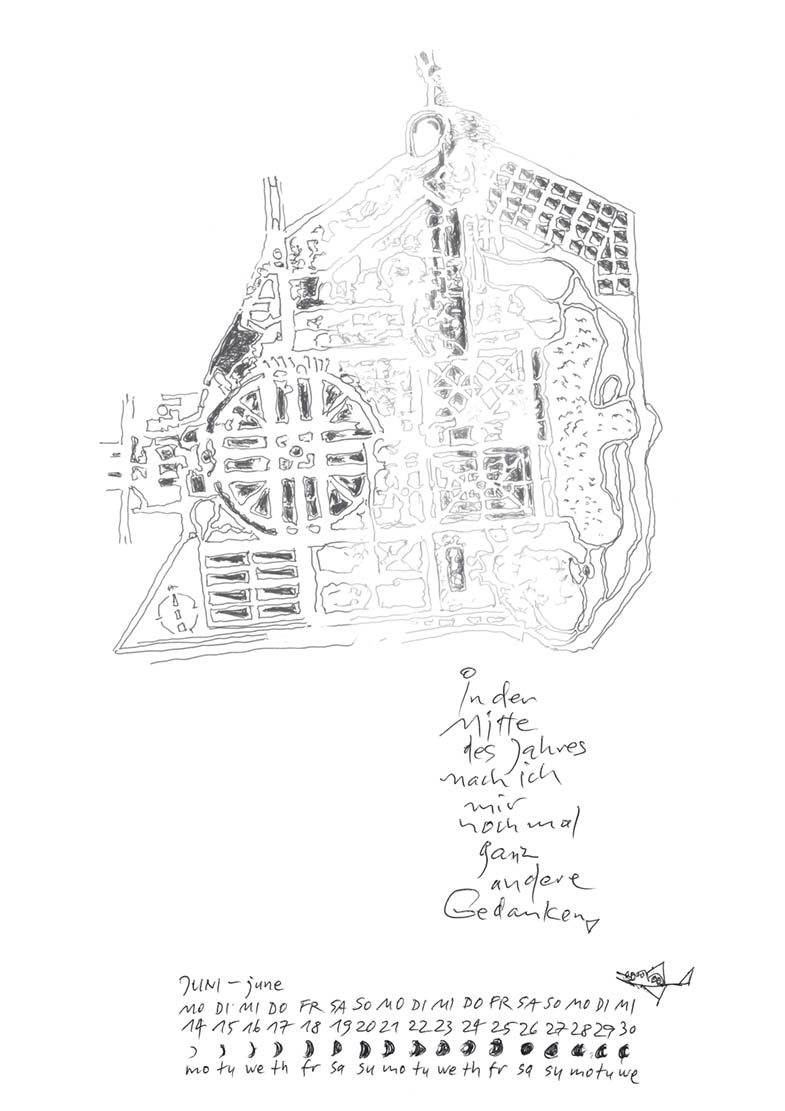 in der
Mitte
des Jahres
mach ich
mir
noch mal
ganz
andere
Gedanken,
JUNI – june
MO DI MI DO FR SA SO MO DI MI DO FR SA SO MO DI MI
14 15 16 17 18 19 20 21 22 23 24 25 26 27 28 29 30
mo tu we th fr sa su mo tu we th fr sa su mo tu we